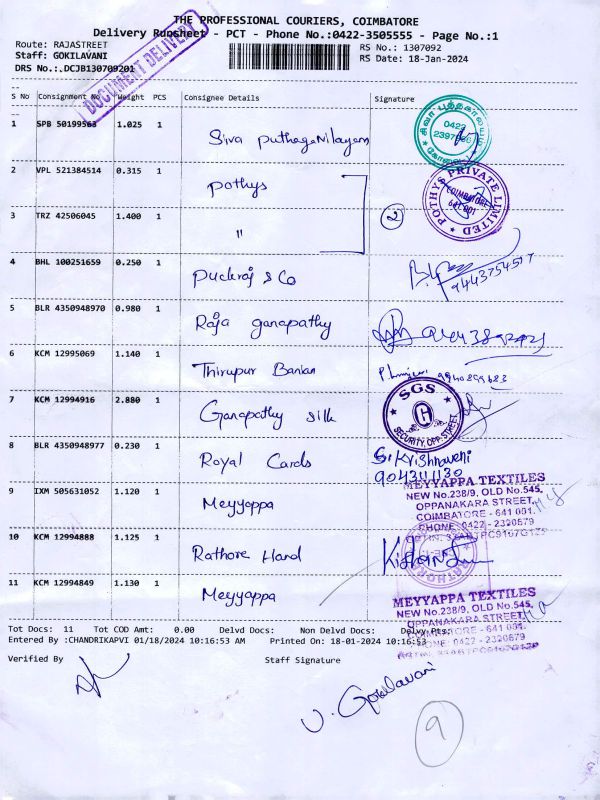 THE PROFESSIONAL COURIERS, COIMBATORE
Delivery Runsheet - PCT - Phone No.:0422-3505555 - Page No.:1
Route: RAJASTREET
RS No.: 1307092
Staff: GOKILAVANI
RS Date: 18-Jan-2024
DRS No.:.DCJB130709201
DOCUMENT DELIVERY
S No Consignment No Weight PCS Consignee Details Signature
1 SPB 50199563 1.025 1 Siva puthaga Nilayam
சிவா புத்தகாலயம்
0422
கோவை
2 VPL 521384514 0.315 1 pothys
POTHYS PRIVATE LIMITED
COIMBATORE
641 001
3 TRZ 42506045 1.400 1 "
2
4 BHL 100251659 0.250 1 Puckraj & Co
9443754577
5 BLR 4350948970 0.980 1 Raja ganapathy
6 KCM 12995069 1.140 1 Thirupur Banian
9940899683
7 KCM 12994916 2.880 1 Ganapathy silk
SGS
SECURITY, OPP. STREET
8 BLR 4350948977 0.230 1 Royal Cards
S. Krishnaveni
9043111130
9 IXM 505631052 1.120 1 Meyyappa
MEYYAPPA TEXTILES
NEW No.238/9, OLD No.545,
OPPANAKARA STREET,
COIMBATORE - 641 001.
PHONE 0422 - 2320879
10 KCM 12994888 1.125 1 Rathore Hand
11 KCM 12994849 1.130 1 Meyyappa
MEYYAPPA TEXTILES
NEW No.238/9, OLD No.545,
OPPANAKARA STREET,
COIMBATORE - 641 001.
PHONE 0422 - 2320879
Tot Docs: 11 Tot COD Amt: 0.00 Delvd Docs: Non Delvd Docs: Delvy Pts:
Entered By :CHANDRIKAPVI 01/18/2024 10:16:53 AM Printed On: 18-01-2024 10:16:53
Verified By
Staff Signature
V. Gokilavani
9